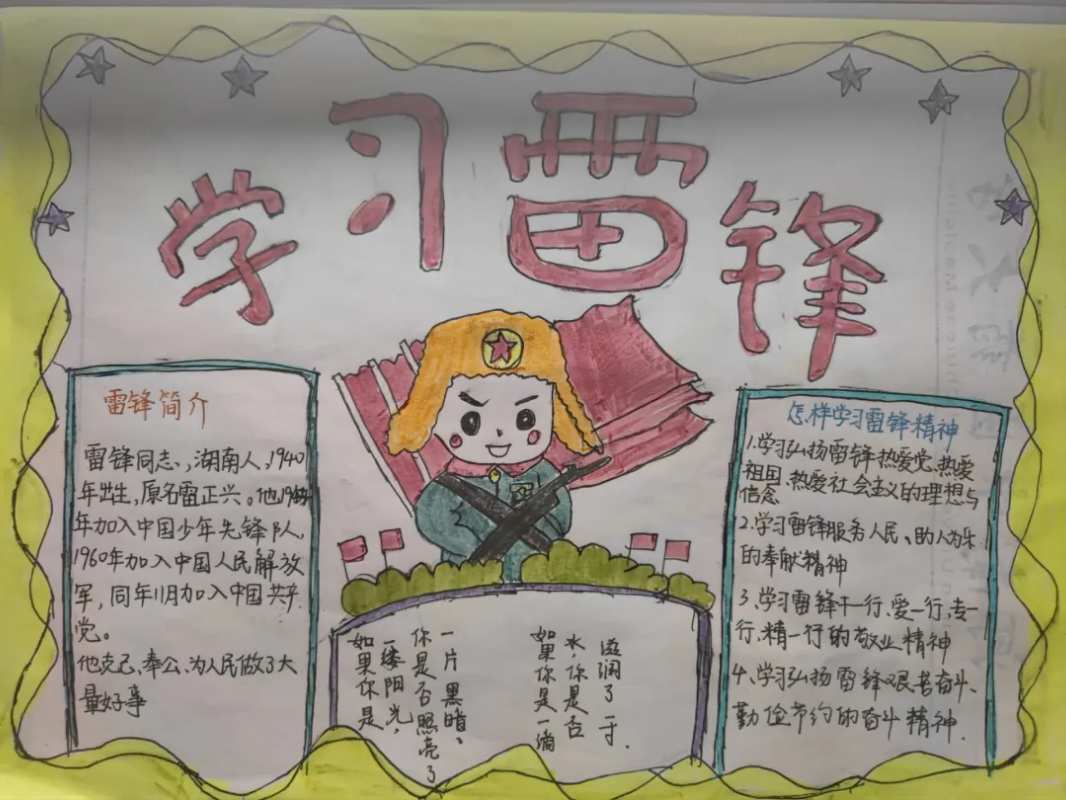 学习雷锋
雷锋简介
雷锋同志,湖南人,1940
年出生,原名雷正兴。他
年加入中国少年先锋队,
1960年加入中国人民解放
军,同年11月加入中国共产
党。
他克己、奉公、为人民做了大
量好事
如果你是
一缕阳光,
你是否照亮了
一片黑暗、
如果你是一滴
水你是否
滋润了一寸.
怎样学习雷锋精神
1.学习弘扬雷锋热爱党、热爱
祖国、热爱社会主义的理想与
信念
2.学习雷锋服务人民、助人为乐
的奉献精神
3.学习雷锋干一行、爱一行、专一
行、精一行的敬业精神
4、学习弘扬雷锋艰苦奋斗、
勤俭节约的奋斗精神.